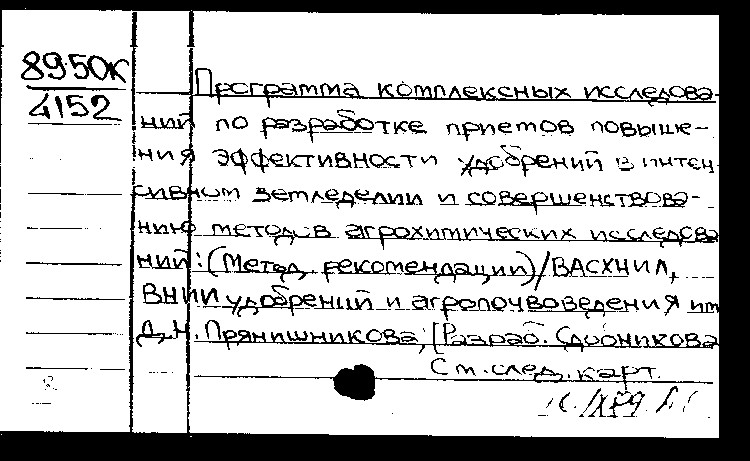 8950к
4152
Программа комплексных исследова-
ний по разработке приемов повыше-
ния эффективности удобрений в интен-
сивном земледелии и совершенствова-
нию методов агрохимических исследова
ний: (Метод. рекомендации) / ВАСХНИЛ,
ВНИИ удобрений и агропочвоведения им
Д.Н. Прянишникова; [Разраб. Сдобникова
См. след. карт.